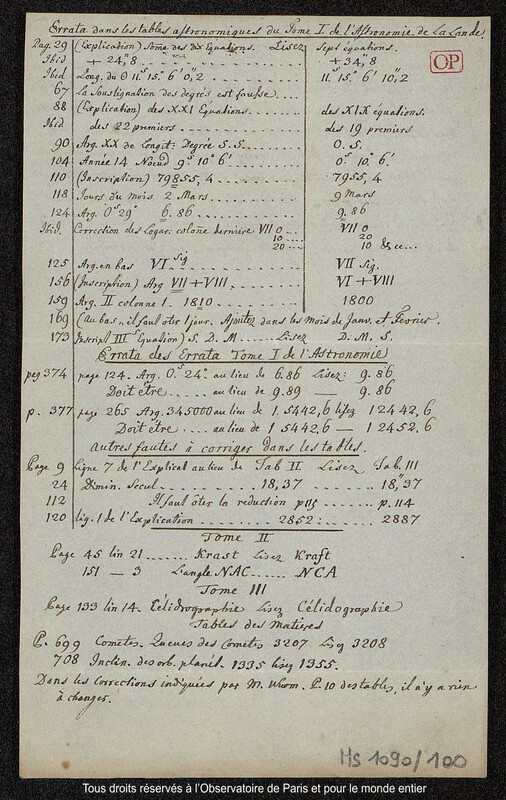 Errata dans les tables astronomiques du Tome I de l'Astronomie de La Lande.
Pag. 29 (Explication) Some des dix Equations. Lisez Sept équations.
Ibid + 24",8 ........ + 34",8
OP
Ibid Long. du ☉ 11.s 15.° 6' 0",2 ........ 11. 15.° 6' 10",2
67 La soustignation des degrés est fausse
88 (Explication) des XXI Equations ........ des XIX équations.
Ibid des 22 premiers ........ des 19 premiers
90 Arg. XX de Longit. Degrée S. S. ........ O. S.
104 Année 14 Nœud 9s 10° 6' ........ 0s 10° 6'
110 (Inscription) 79855,4 ........ 7955,4
118 Jours du mois 2 Mars ........ 9 Mars
124 Arg. 0s 29° 6. 86 ........ 9. 86
Ibid. Correction des Logar: colone derniere VII 0 ... VII 0
10 ... 20
20 ... 10 &c...
125 Arg. en bas VI Sig ........ VII Sig.
156 (Inscription) Arg VII + VIII ........ VI + VIII
159 Arg. II colonne 1. 1810 ........ 1800
169 (au bas,, il faut ôter 1 jour. Ajoutez dans les mois de Janv. et Fevrier.
173 Inscript III.e Equation) S. D. M. ........ Lisez D. M. S.
Errata des Errata Tome I de l'Astronomie
pag 374 page 124. Arg. 0.s 24.° au lieu de 6.86 Lisez: 9.86
Doit être ..... au lieu de 9.89 — 9.86
p. 377 page 265 Arg. 345000 au lieu de 1.5442,6 lisez 12442,6
Doit être ..... au lieu de 15442,6 — 12452,6
autres fautes à corriger dans les tables.
Page 9 Ligne 7 de l'Explicat au lieu de Tab II Lisez Tab. III
24 Dimin. Secul ........ 18,37 ........ 18",37
112 Il faut ôter la reduction p 115 ........ p. 114
120 lig. 1 de l'Explication ........ 2852: ........ 2887
Tome II
Page 45 lin 21 ........ Krast Lisez Kraft
151 — 3 L'angle NAC ...... NCA
Tome III
Page 133 lin 14. Célidrographie Lisez Célidographie
Tables des Matieres
P. 699 Cometes. Queues des Cometes 3207 Lisez 3208
708 Inclin. des orb. planét. 1335 lisez 1355.
Dans les Corrections indiquées par M. P. 10 des tables, il n'y a rien
à changer.
Ms 1090/100
Tous droits réservés à l'Observatoire de Paris et pour le monde entier